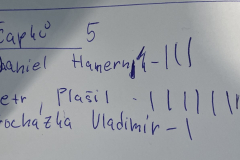 Čapků 5
Daniel Hamerník - |||
Petr Plašil - |||||||
Procházka Vladimír - |